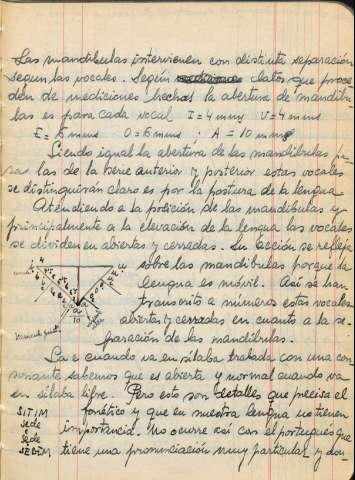 Las mandibulas intervienen con distinta separación
segun las vocales. Según datos que proce
den de mediciones hechas la abertura de mandibu
las es para cada vocal I=4 mms U=4 mms
E=6 mms O=6 mms A=10 mms
Siendo igual la abertura de las mandibulas
las de la serie anterior y posterior estas vocales
se distinguiran claro es por la postura de la lengua
Atendiendo a la posición de las mandibulas y
principalmente a la elevación de la lengua las vocales
se dividen en abiertas y cerradas. Su acción se refleja
sobre las mandibulas porque la
lengua es móvil. Así se han
transcrito a números estas vocales
abiertas y cerradas en cuanto a la se-
paración de las mandibulas.
i 4
4 u
a
10
La e cuando va en sílaba trabada con una con
sonante sabemos que es abierta y normal cuando va
en sílaba libre. Pero esto son detalles que precisa el
fonético y que en nuestra lengua no tienen
importancia. No ocurre así con el portugués que
tiene una pronunciación muy particular y don-
SITIM
sede
sede